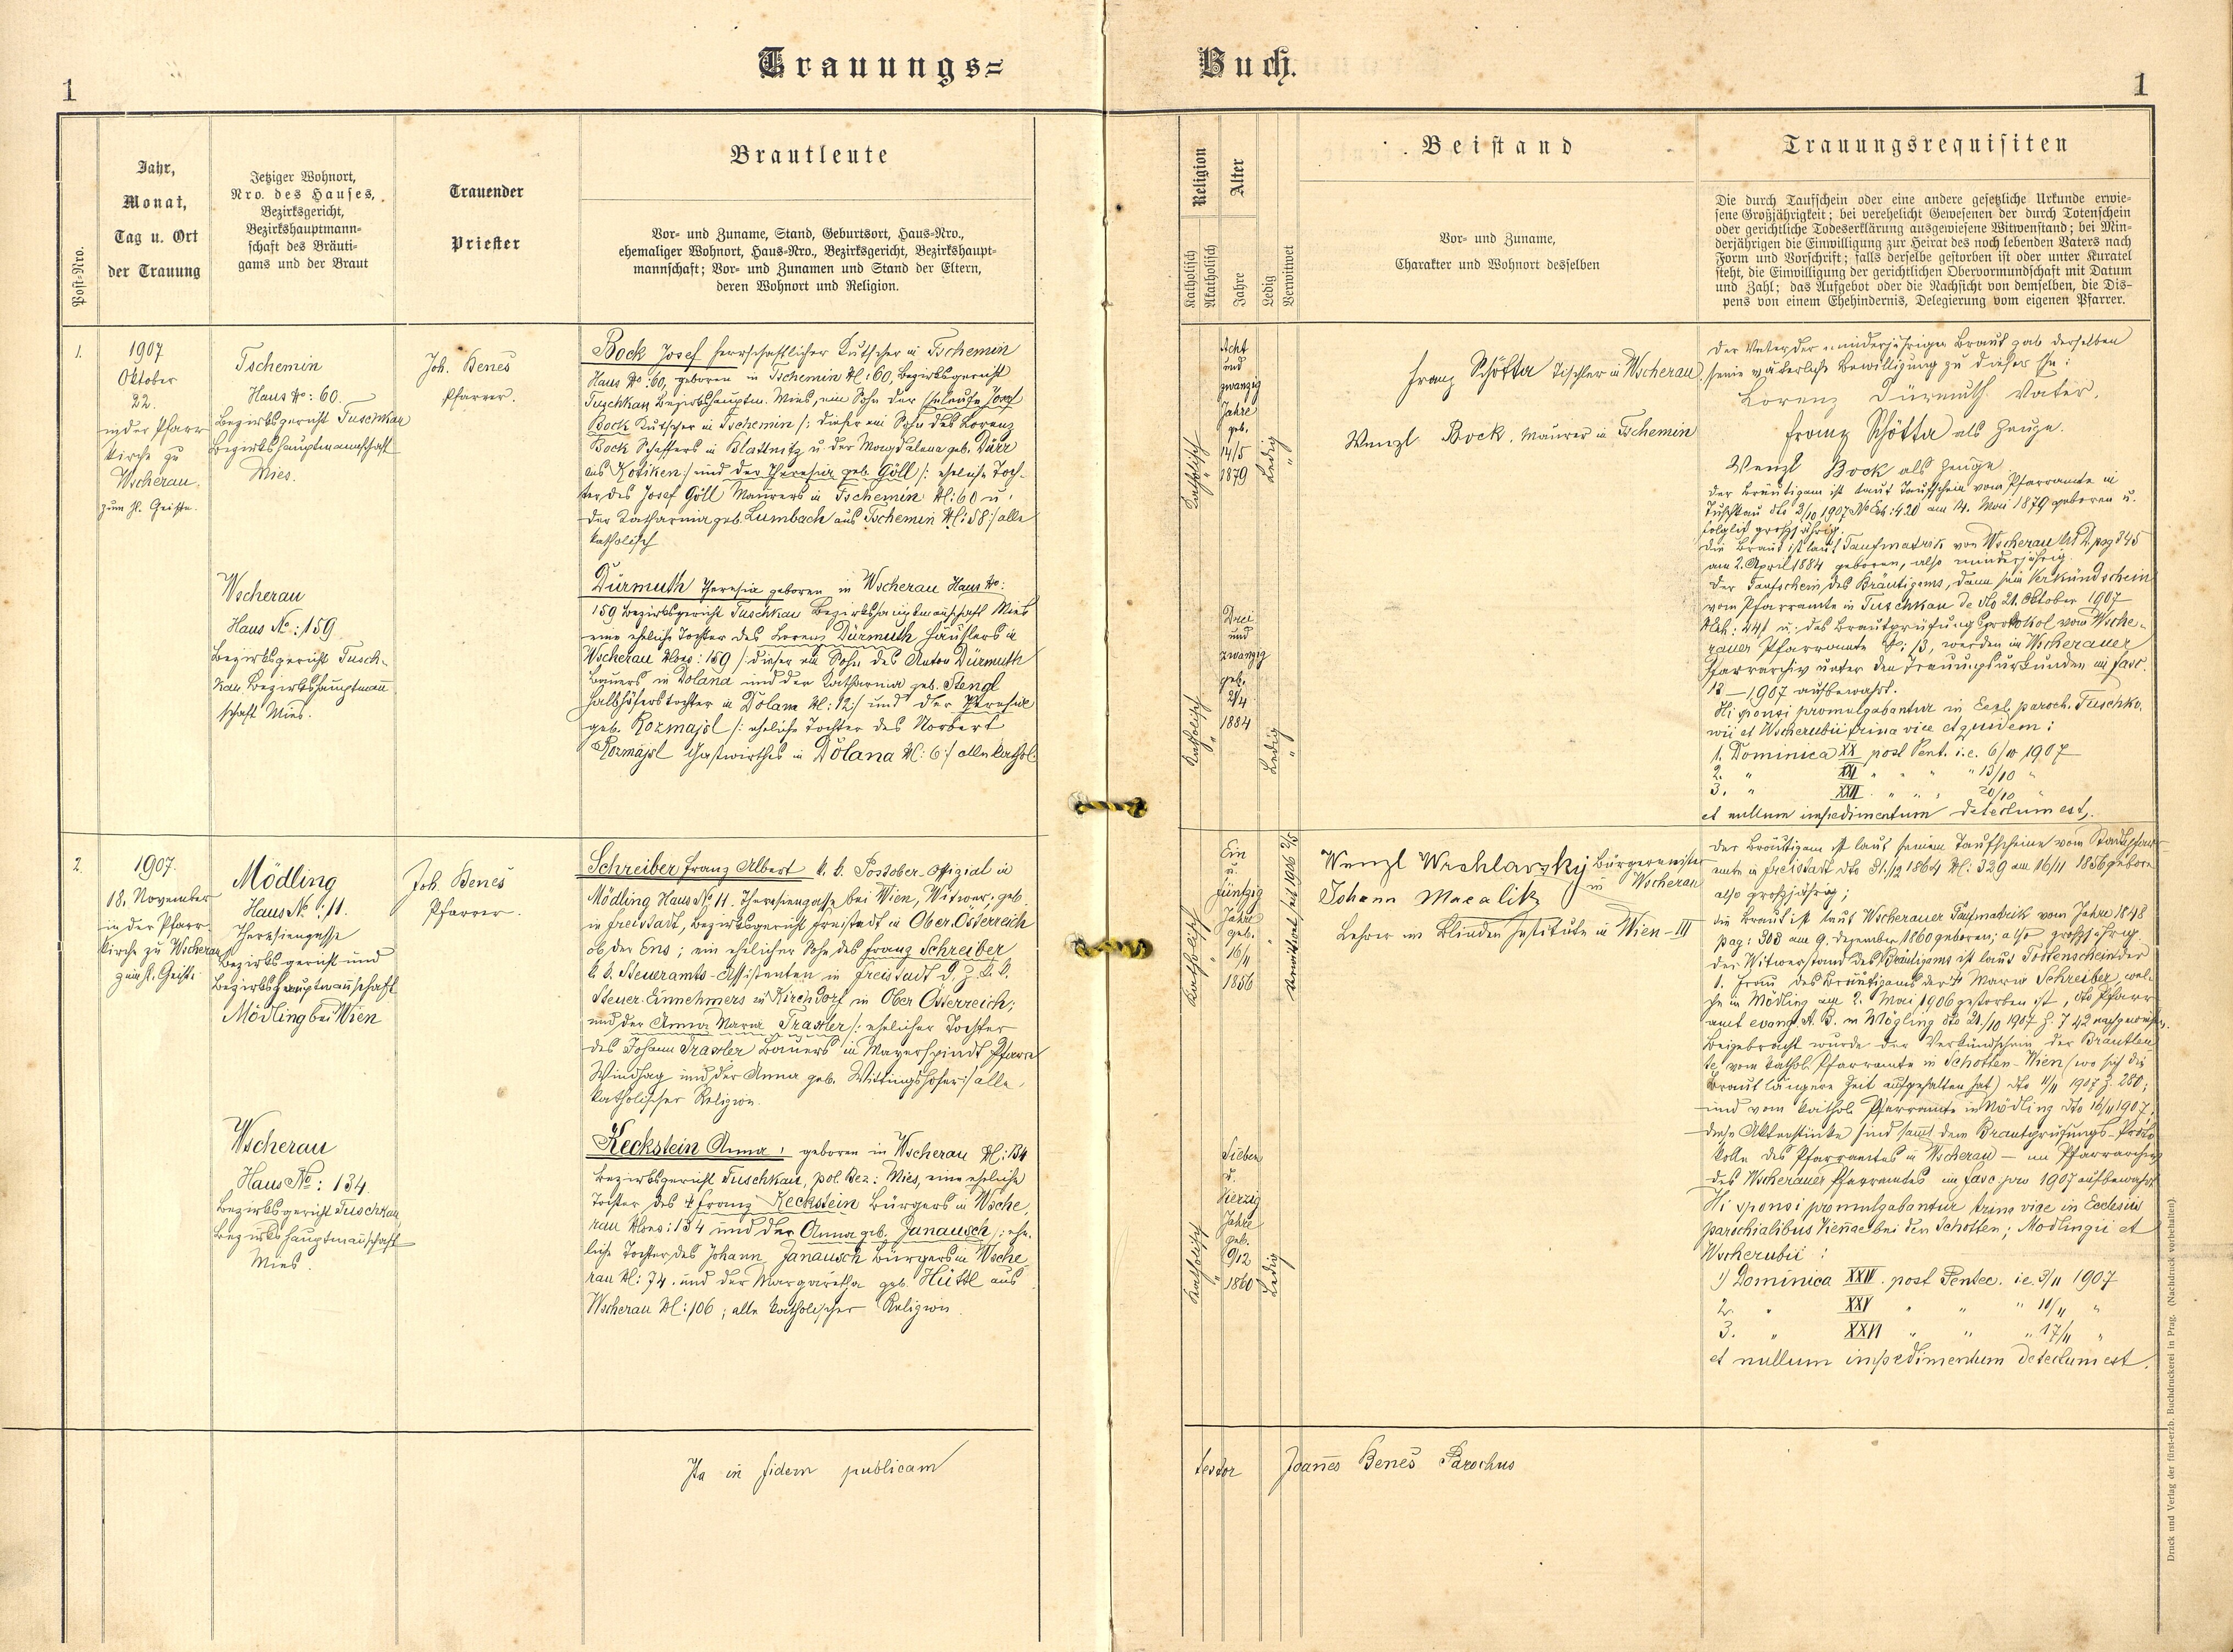 Trauungs=
Buch.
1
1
Post-Nro.
Jahr,
Monat,
Tag u. Ort
der Trauung
Jetziger Wohnort,
Nro. des Hauses,
Bezirksgericht,
Bezirkshauptmann-
schaft des Bräuti-
gams und der Braut
Trauender
Priester
Brautleute
Vor- und Zuname, Stand, Geburtsort, Haus-Nro.,
ehemaliger Wohnort, Haus-Nro., Bezirksgericht, Bezirkshaupt-
mannschaft; Vor- und Zunamen und Stand der Eltern,
deren Wohnort und Religion.
Religion
Katholisch
Akatholisch
Alter
Jahre
Ledig
Verwitwet
Beistand
Vor- und Zuname,
Charakter und Wohnort desselben
Trauungsrequisiten
Die durch Taufschein oder eine andere gesetzliche Urkunde erwie-
sene Großjährigkeit; bei verehelicht Gewesenen der durch Totenschein
oder gerichtliche Todeserklärung ausgewiesene Witwenstand; bei Min-
derjährigen die Einwilligung zur Heirat des noch lebenden Vaters nach
Form und Vorschrift; falls derselbe gestorben ist oder unter Kuratel
steht, die Einwilligung der gerichtlichen Obervormundschaft mit Datum
und Zahl; das Aufgebot oder die Nachsicht von demselben, die Dis-
pens von einem Ehehindernis, Delegierung vom eigenen Pfarrer.
1.
1907
Oktober
22.
in der Pfarr
kirche zu
Wscherau
zum hl. Geiste.
Tschemin
Haus No: 60.
Bezirksgericht Tuschkau
Bezirkshauptmannschaft
Mies.
Joh. Beneš
Pfarrer.
Bock Josef herrschaftlicher Kutscher in Tschemin
Haus No: 60, geboren in Tschemin N: 60, Bezirksgericht
Tuschkau Bezirkshauptm. Mies, ein Sohn der Eheleute Josef
Bock Kutscher in Tschemin /: dieser ein Sohn des Lorenz
Bock Schaffers in Blattnitz u. der Magdalena geb. Dürr
aus Kotiken:/ und der Theresia geb. Göll /: eheliche Toch-
ter des Josef Göll Maurers in Tschemin N: 60 u.
der Katharina geb. Lumbach aus Tschemin N: 58:/ alle
katholisch
Wscherau
Haus No: 159
Bezirksgericht Tusch-
kau Bezirkshauptmann
schaft Mies.
Dürmuth Theresia geboren in Wscherau Haus No:
159 Bezirksgericht Tuschkau Bezirkshauptmannschaft Mies
eine eheliche Tochter des Lorenz Dürmuth Häuslers in
Wscherau Nro: 159 /: dieser ein Sohn des Anton Dürmuth
Bauers in Dolana und der Katharina geb. Stengl
Halbhöferstochter in Dolana N: 12:/ und der Theresia
geb. Rozmajsl /: eheliche Tochter des Norbert
Rozmajsl Gastwirthes in Dolana N: 6:/ alle kathol.
Katholisch
Acht
und
zwanzig
Jahre
geb.
14/5
1879
Ledig
Katholisch
Drei
und
zwanzig
geb.
2/4
1884
Ledig
Franz Schötta Tischler in Wscherau
Wenzl Bock, Maurer in Tschemin
Der Vater der minderjährigen Braut gab derselben
seine väterliche Bewilligung zu dieser Ehe:
Lorenz Dürmuth Vater.
Franz Schötta als Zeuge.
Wenzl Bock als Zeuge
Der Bräutigam ist laut Taufschein vom Pfarramte in
Tuschkau dto 3/10 1907 No Exh: 420 am 14. Mai 1879 geboren u.
folglich großjährig.
Die Braut ist laut Taufmatrik von Wscherau pag 345
am 2. April 1884 geboren, also minderjährig
Der Taufschein des Bräutigams, dann sein Verkündschein
vom Pfarramte in Tuschkau de dto 21. Oktober 1907
NExh: 441 u. das Brautprüfung protokol vom Wsche-
rauer Pfarramte werden im Wscherauer
Pfarrarchiv unter den Trauungsurkunden in fasc.
18—1907 aufbewahrt.
Hi sponsi promulgabantur in Eccl. paroch. Tuschko-
wii et Wscherubii trina vice et quidem:
1. Dominica XX post Pent. i.e. 6/10 1907
2. " XXI " " " 13/10 "
3. " XXII " " " 20/10 "
et nullum impedimentum detectum est.
2.
1907.
18. November
in der Pfarr-
kirche zu Wscherau
zum hl. Geiste
Mödling
Haus No: 11.
Theresiengasse
Bezirksgericht und
Bezirkshauptmannschaft
Mödling bei Wien
Joh. Beneš
Pfarrer.
Schreiber, Franz Albert k. k. Postober-Offizial in
Mödling Haus No 11. Theresiengasse bei Wien, Witwer; geb.
in Freistadt, Bezirksgericht Freistadt in Ober Österreich
ob der Ens; ein ehelicher Sohn des Franz Schreiber
k. k. Steueramts-Assistenten in Freistadt d. Z. k. k.
Steuer-Einnehmers in Kirchdorf in Ober Österreich;
und der Anna Maria Traxler /: ehelicher Tochter
des Johann Traxler Bauers in Mayerspindt Pfarre
Windhag und der Anna geb. Wittingshofer:/ alle
katholischer Religion.
Wscherau
Haus No: 134.
Bezirksgericht Tuschkau
Bezirkshauptmannschaft
Mies.
Keckstein Anna, geboren in Wscherau N: 134
Bezirksgericht Tuschkau, pol. Bez: Mies, eine eheliche
Tochter des † Franz Keckstein Bürgers in Wsche
rau Nro: 134 und der Anna geb. Janausch /: ehe-
liche Tochter des Johann Janausch Bürgers in Wsche
rau N: 74. und der Margaretha geb. Hüttl aus
Wscherau N: 106; alle katholischer Religion.
Katholisch
Ein
u.
fünfzig
Jahre
geb.
16/11
1856
Verwitwet seit 1906 2/5
Katholisch
Sieben
u.
Vierzig
Jahre
geb.
9/12
1860
Ledig
Wenzl Wrchlavsky Bürgermeister
in Wscherau
Johann Macalik
Lehrer im Blinden Institute in Wien—III
Der Bräutigam ist laut seinem Taufscheine vom Stadtpfarr
amte in Freistadt dto 31./12 1864 N: 329 am 16/11 1856 geboren
also großjährig;
Die Braut ist laut Wscherauer Taufmatrik vom Jahre 1848
pag: 303 am 9. Dezember 1860 geboren; also großjährig.
Der Witwerstand des Bräutigams ist laut Tottenschein der
1. Frau des Bräutigams der † Maria Schreiber, wel-
che in Mödling am 2. Mai 1906 gestorben ist, dto Pfarr
amt evang. A. B. in Mödling dto 21./10 1907 Z. 742 nachgewiesen.
Beigebracht wurde der Verkündschein der Brautleu
te, vom kathol. Pfarramte in Schotten-Wien (wo sich die
Braut längere Zeit aufgehalten hat) dto 1907 Z. 280;
und vom kathol. Pfarramte in Mödling dto 16/11 1907.
Diese Aktenstücke sind samt dem Brautprüfungs-Proto
kolle des Pfarramtes in Wscherau — im Pfarrarchiv
des Wscherauer Pfarramtes im fasc pro 1907 aufbewahrt
Hi sponsi promulgabantur trina vice in Ecclesiis
parochialibus Viennae bei den Schotten; Mödlingii et
Wscherubii:
1) Dominica XXIV. post Pentec. i.e. 3/11 1907
2. " XXV " " " 10/11 "
3. " XXVI " " " 17/11 "
et nullum impedimentum detectum est.
Ita in fidem publicam
testor Joannes Beneš Parochus
Druck und Verlag der fürst-erzb. Buchdruckerei in Prag. (Nachdruck vorbehalten).